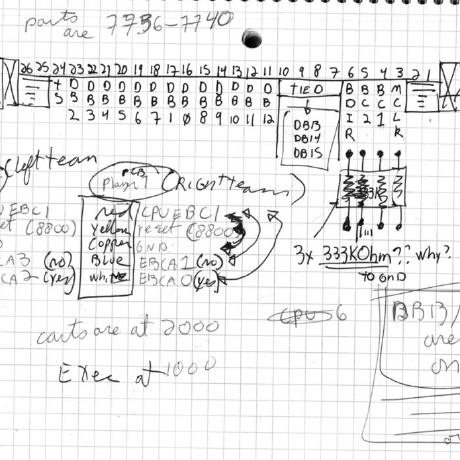 parts are 7736-7740
26 25 24 23 22 21 20 19 18 17 16 15 14 13 12 11 10 9 8 7 6 5 4 3 2 1
D D D D D D D D D D D TIED B B B M
B B B B B B B B B B B D C C C
2 3 4 5 6 7 1 0 8 9 10 11 12 I 2 1 L
DB13 R R
DB14
DB15
(Left team
PCB
Player 1 (Right team)
EBC1 red CPU EBC1
(8800) Yellow reset (8800)
Copper GND
CA3 (no) Blue EBCA1 (no)
CA2 (yes) white EBCA0 (yes)
3x 333KOhm?? why?
TO GND
carts are at 2000
Exec at 1000
BB13/
are
on